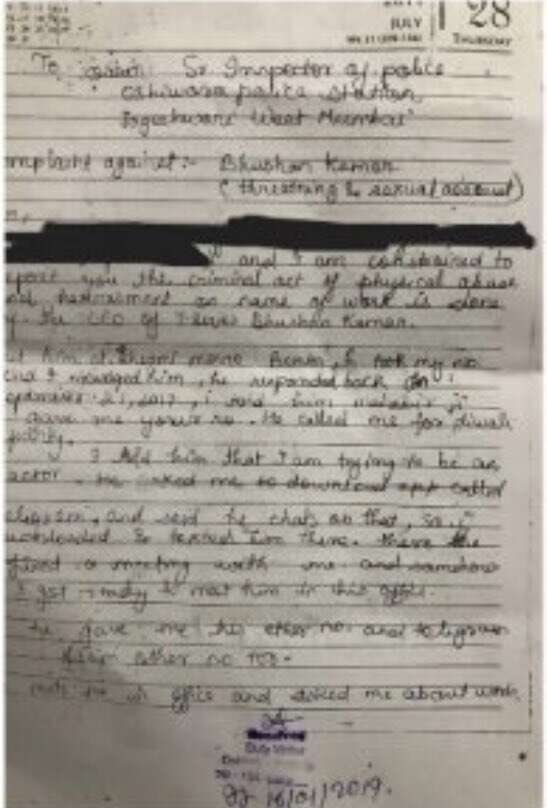 JULY 28
THURSDAY
To Sr. Inspector of police
Oshiwara police station,
Jogeshwari West Mumbai
mplaint against :- Bhushan Kumar
( threatning & sexual assault )
and I am constrained to
eport you the criminal act of physical abuse
harrasment in name of work is done
y the CEO of T Series Bhushan Kumar.
him at, he took my no
and I messaged him, he responded back on
21, 2017, i said him
gave me your no. He called me for diwali
party.
I told him that I am trying to be an
actor. He asked me to download app called
and said he chats on that, so i
downloaded & texted him there. there he
fixed a meeting with me and somehow
I got ready to meet him in his office.
he gave me his other no. and telegram
other no too.
met me in office and asked me about work
Duty Officer
16/01/2019.